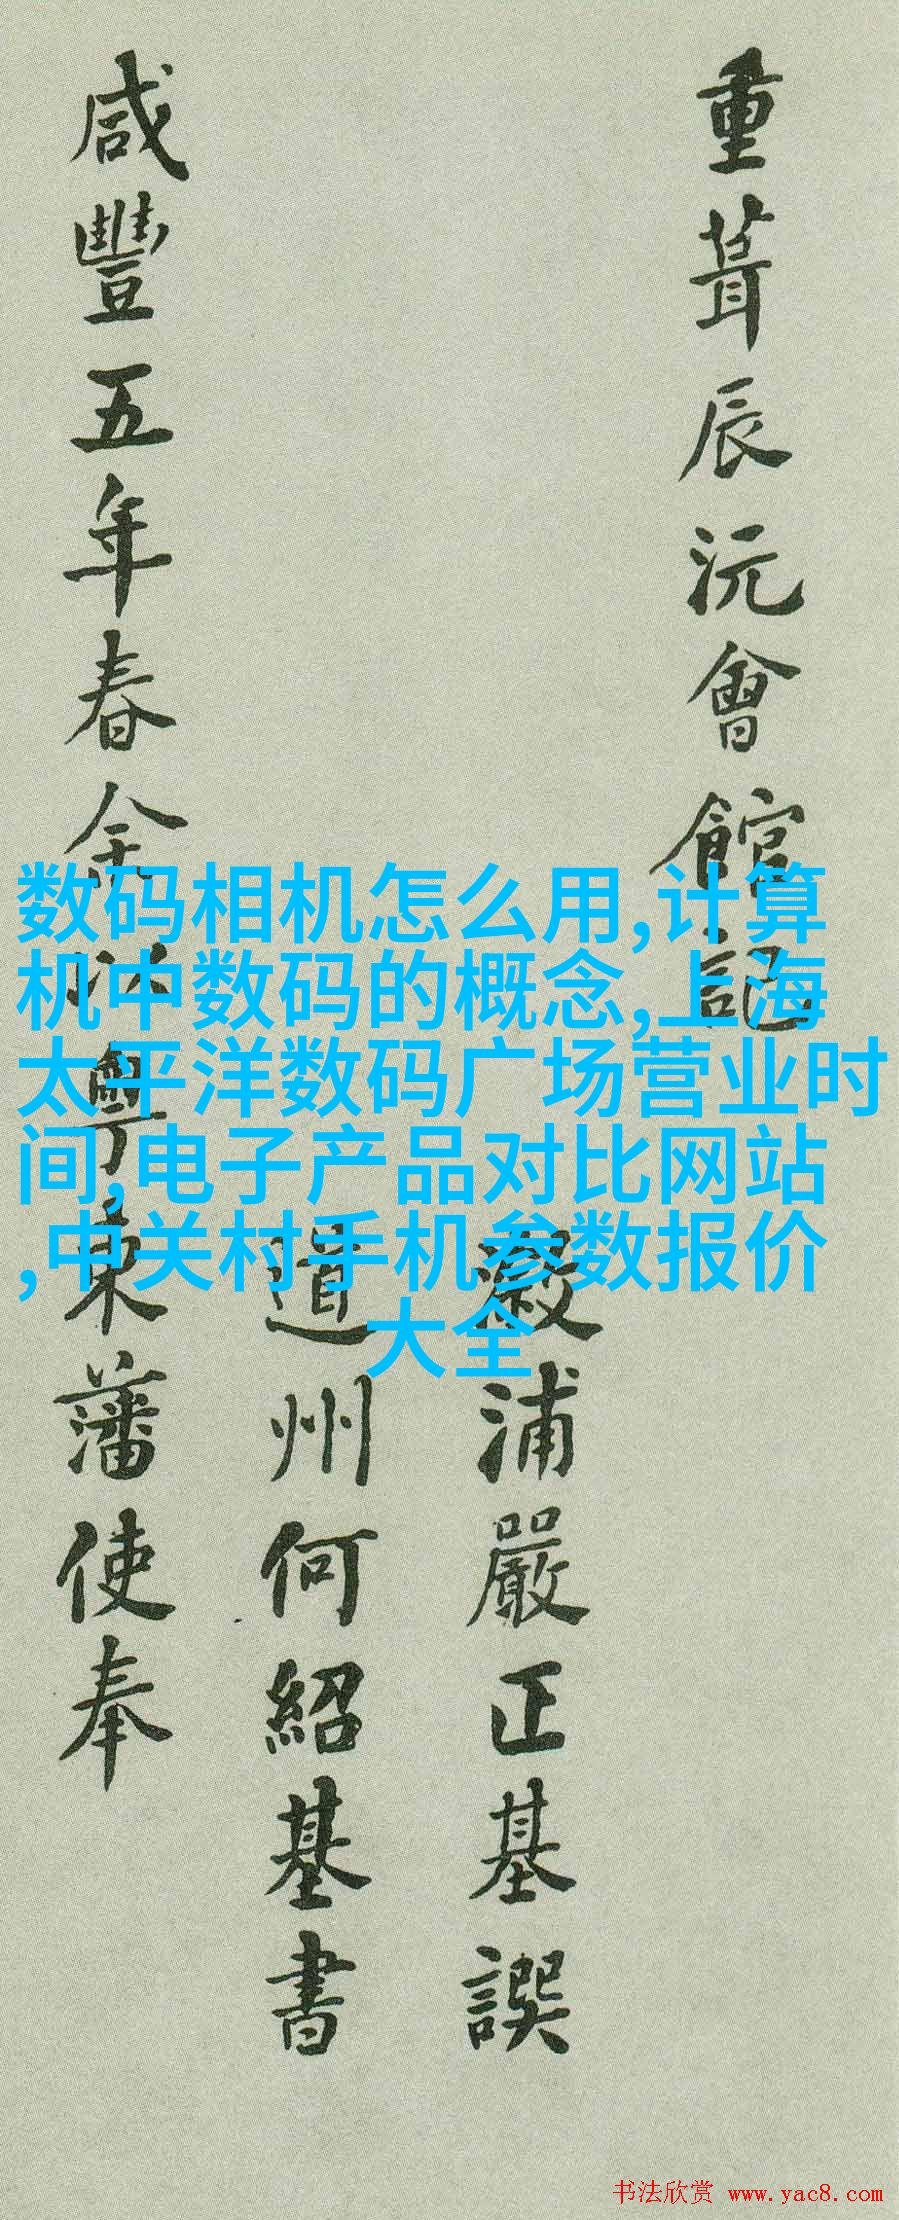 重葺辰沅會館記
漵浦嚴正基譔
道州何紹基書
咸豐五年春余以粵東藩使奉
数码相机怎么用,计算
机中数码的概念,上海
太平洋数码广场营业时
间,电子产品对比网站
,中关村手机参数报价
大全
书法欣赏 www.yac8.com